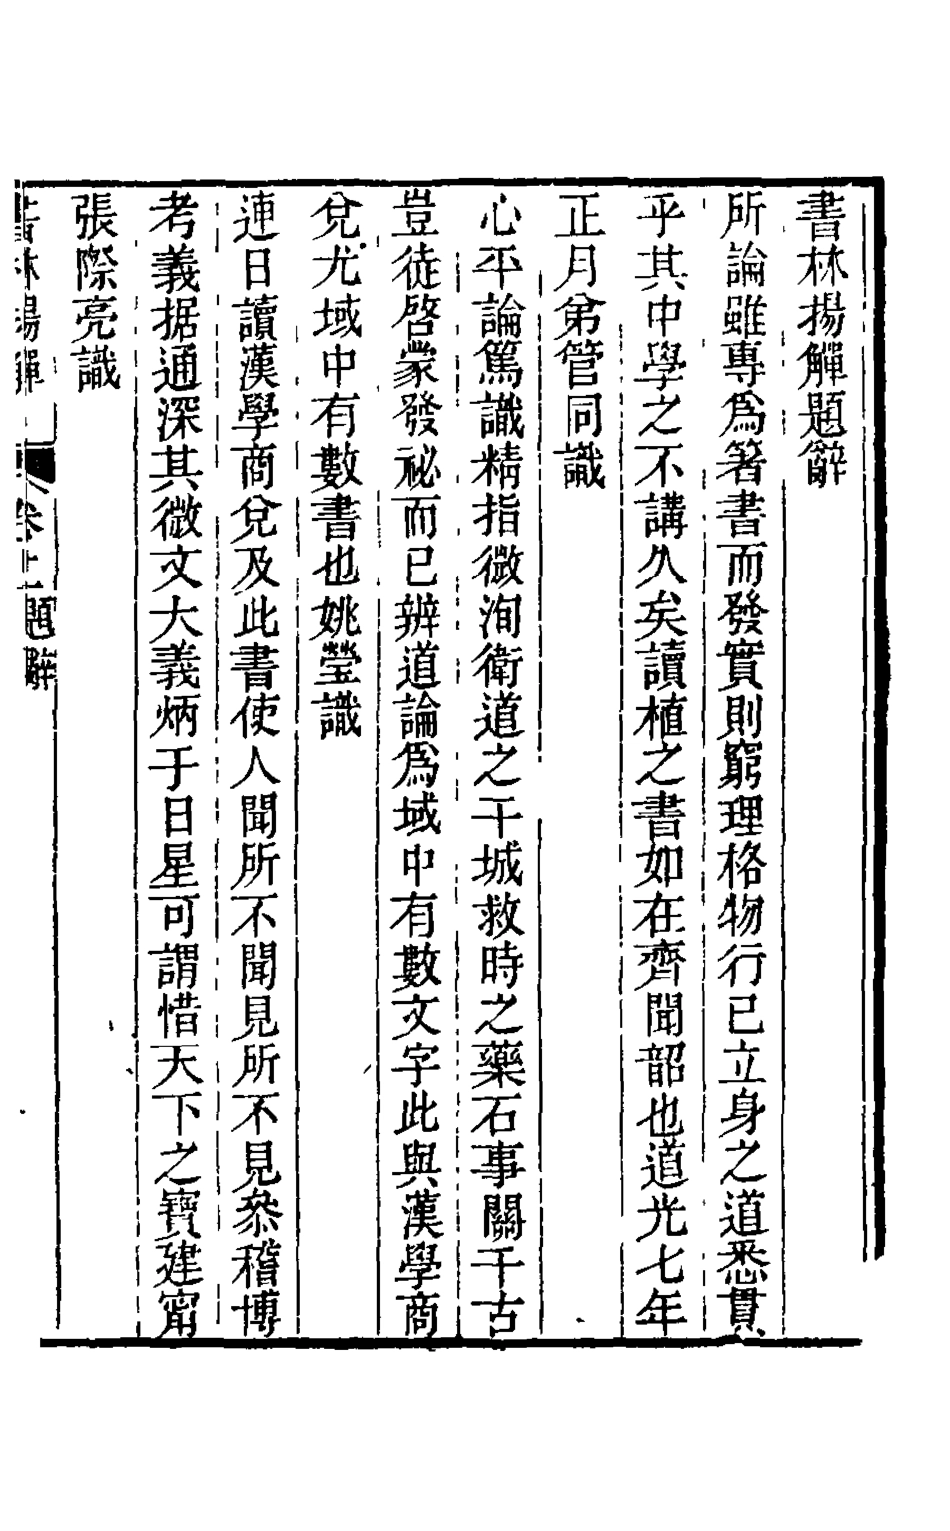 書林揚觶題辭
所論雖專爲箸書而發實則窮理格物行已立身之道悉貫
乎其中學之不講久矣讀植之書如在齊聞韶也道光七年
正月弟管同識
心平論篤識精指微洵衛道之干城救時之藥石事關千古
豈徒啓蒙發祕而已辨道論爲域中有數文字此與漢學商
兌尤域中有數書也姚瑩識
連日讀漢學商兌及此書使人聞所不聞見所不見叅稽博
考義据通深其微文大義炳于日星可謂惜天下之寶建甯
張際亮識
書林揚觶 卷上 題辭